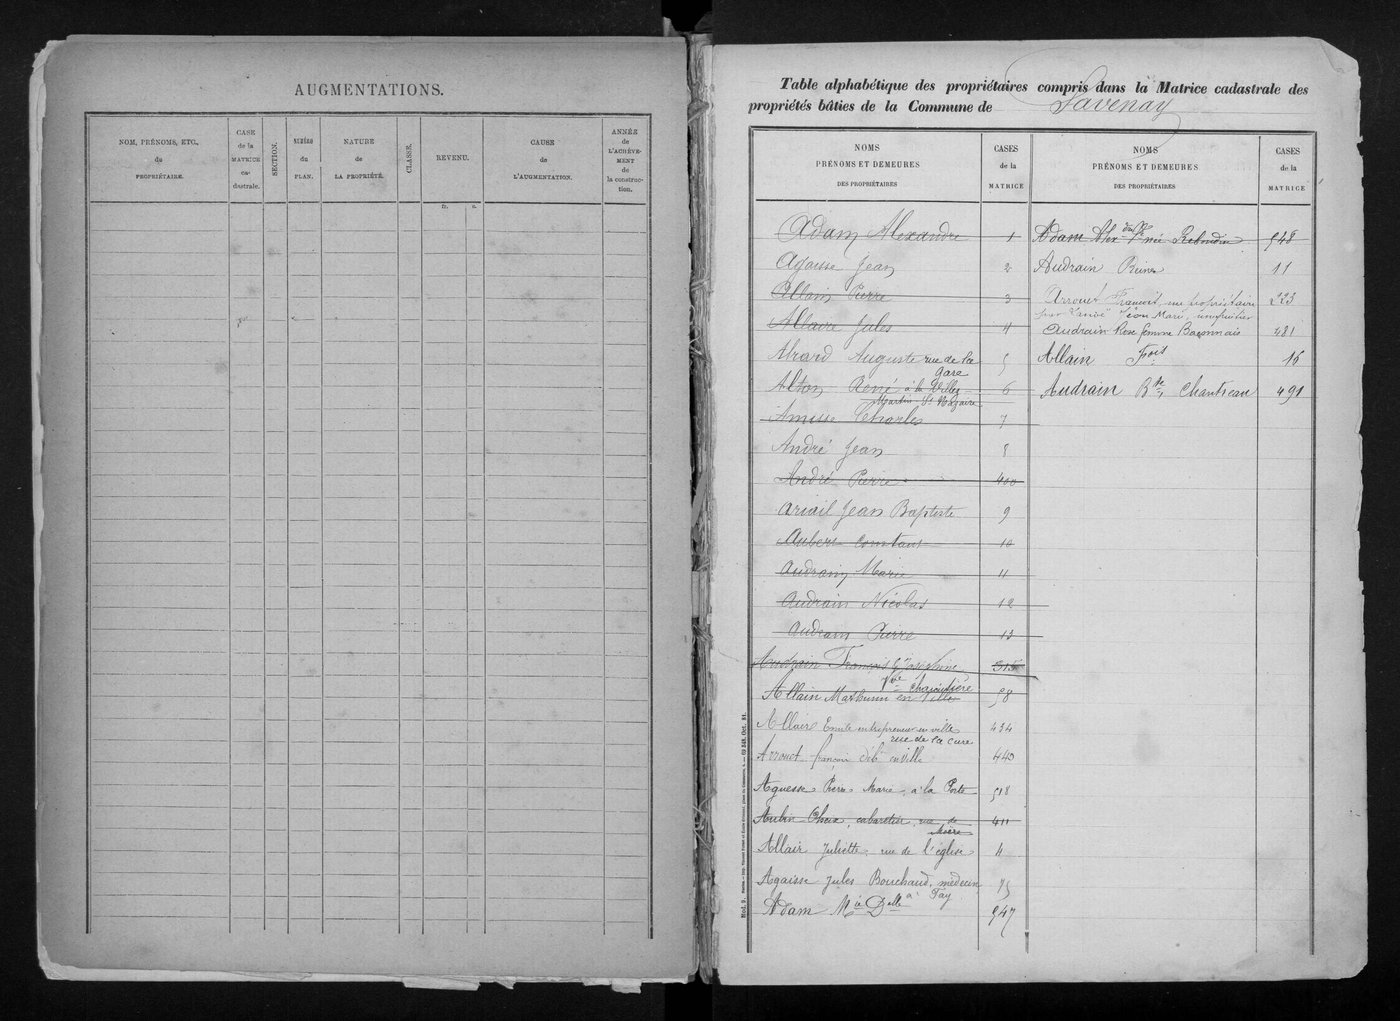 AUGMENTATIONS.
NOM, PRÉNOMS, ETC.,
du
PROPRIÉTAIRE.
CASE
de la
MATRICE
ca-
dastrale.
SECTION.
NUMÉRO
du
PLAN.
NATURE
de
LA PROPRIÉTÉ.
CLASSE.
REVENU.
fr. c.
CAUSE
de
L'AUGMENTATION.
ANNÉE
de
L'ACHÈVE-
MENT
de
la construc-
tion.
Table alphabétique des propriétaires compris dans la Matrice cadastrale des
propriétés bâties de la Commune de Savenay
NOMS
PRÉNOMS ET DEMEURES
DES PROPRIÉTAIRES
CASES
de la
MATRICE
Adam Alexandre 1
Agaisse Jean 2
Allain Pierre 3
Allaire Jules 4
Auguste rue de la 5
gare
Alton René à la Ville 6
Martin St Nazaire
Amisse Charles 7
André Jean 8
André Pierre 400
Ariail Jean Baptiste 9
Aubert Constant 10
Audrain Marie 11
Audrain Nicolas 12
Audrain Pierre 13
Audrain François
Vve charcutière
Allain Mathurin en ville 58
Allaire Emile entrepreneur en ville 434
rue de la cure
Arrouet françois déb. en ville 440
Aguesse Pierre Marie à la Porte 518
Aubin cabaretier, rue de 411
Allair Juliette rue de l'église 4
Agaisse Jules Bouchaud, médecin 75
à Fay
Adam Mie Delle 547
NOMS
PRÉNOMS ET DEMEURES
DES PROPRIÉTAIRES
CASES
de la
MATRICE
Adam Alex Vve née 548
Audrain Reine 11
Arrouet François, nu propriétaire 223
Jean Marie, usufruitier
Audrain Rose femme Baconnais 481
Allain Fois 16
Audrain Bte Chantreau 491